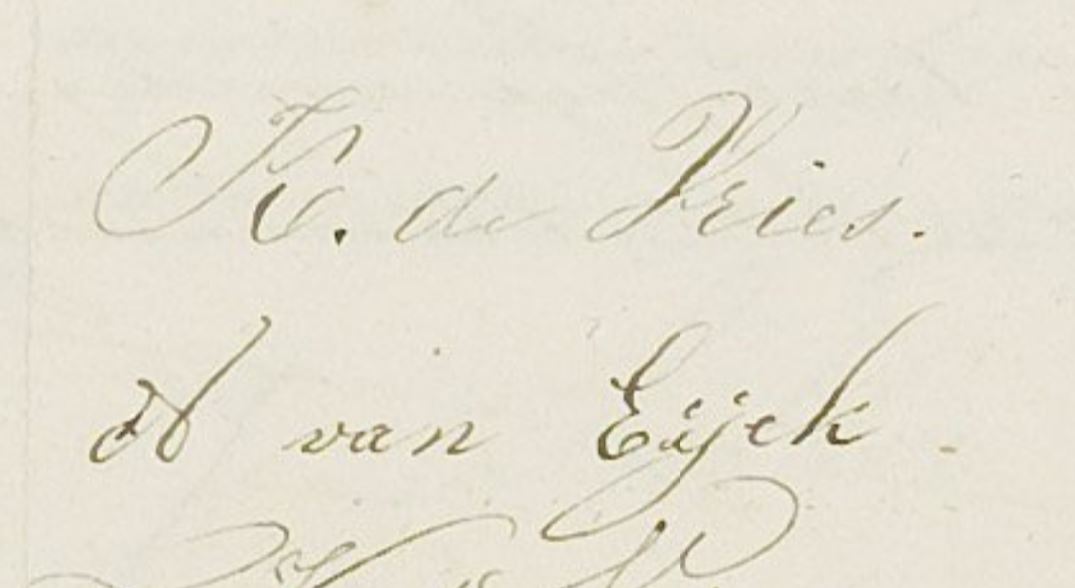 K. de Vries.
A van Eijck.